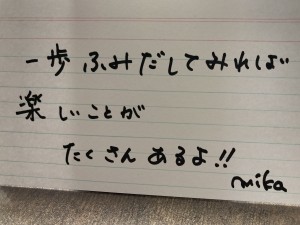 一歩ふみだしてみれば
楽しいことが
たくさんあるよ!!
mika